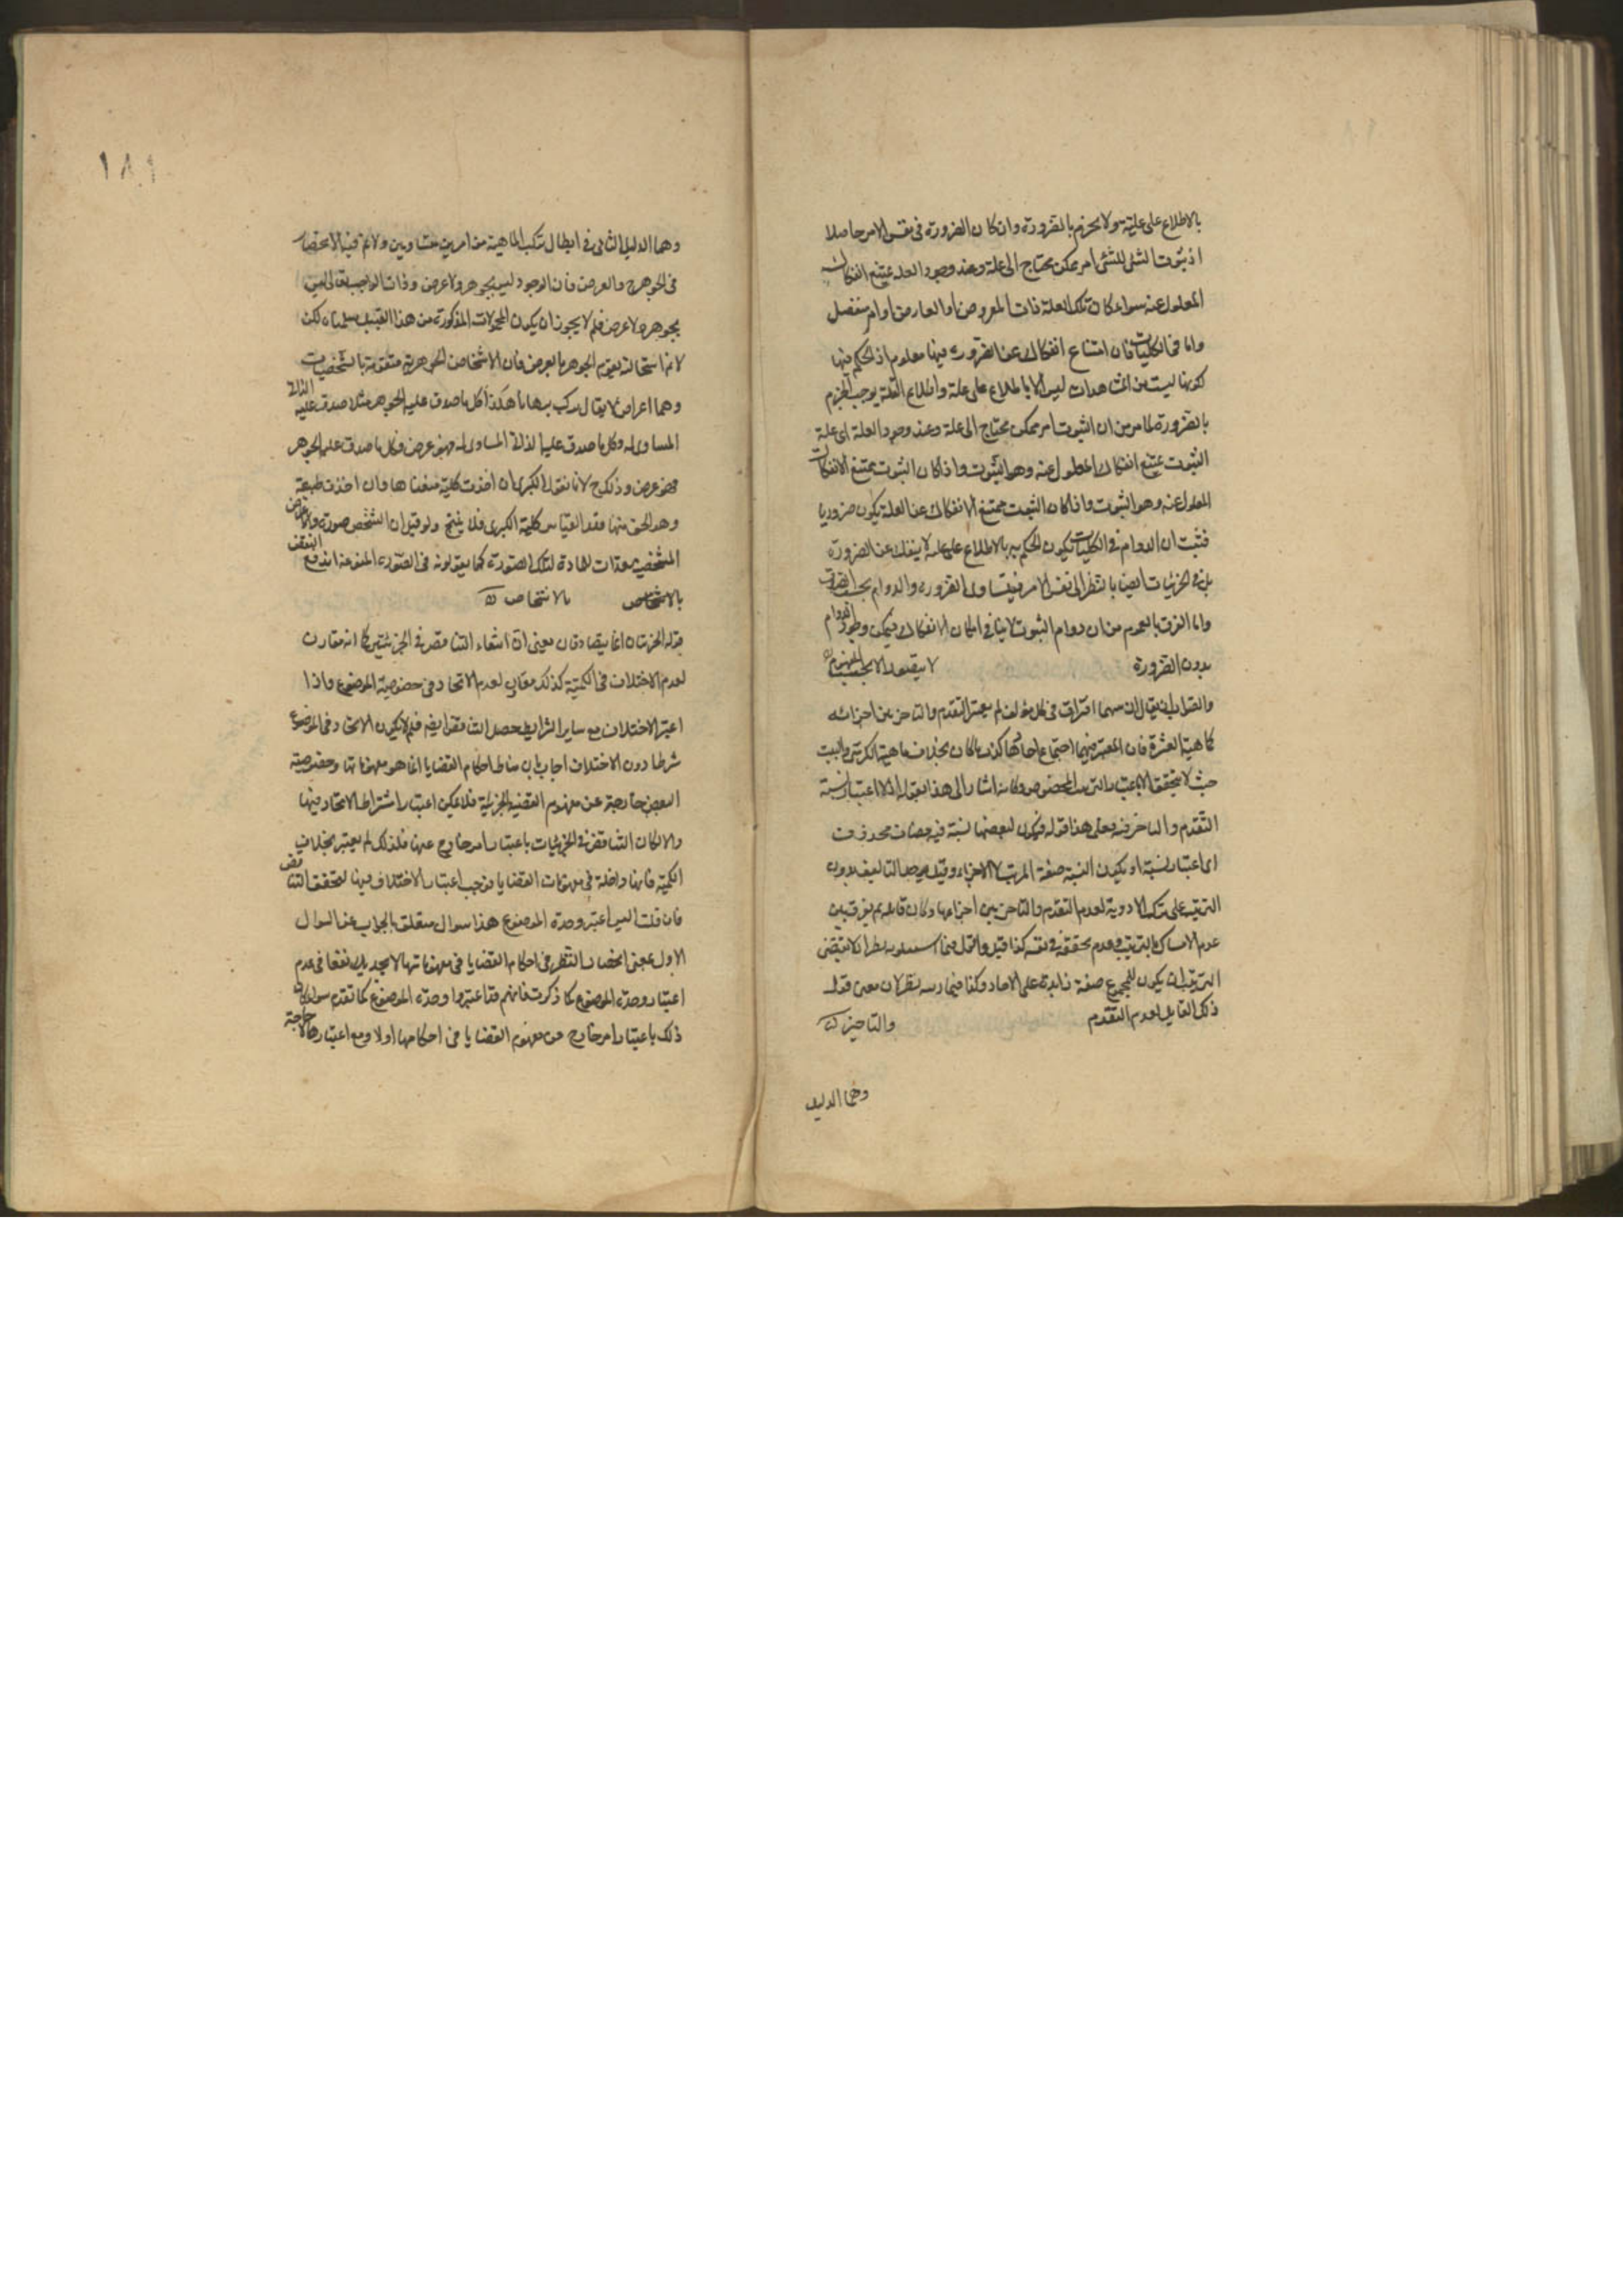 بالاطلاع على علية ولا يجزم بالضرورة وان كان الضرورة فى نفس الامر حاصلا
اذ ثبوت الشئ للشئ امر ممكن يحتاج الى علة وعند وجود العلة يمتنع انفكاك
المعلول عنه سواء كان تلك العلة ذات المعروض او العارض او امر منفصل
واما فى الكليات فان امتناع انفكاك عن الضرورة فيها معلوم اذ الحكم فيها
لكونها ليست من المشاهدات ليس الا بالاطلاع على علة واطلاع العلة يوجب الجزم
بالضرورة لما مر من ان الثبوت امر ممكن يحتاج الى علة وعند وجود العلة اى علة
الثبوت يمتنع انفكاك المعلول عنه وهو الثبوت واذا كان الثبوت ممتنع الانفكاك
المعلول عنه وهو الثبوت واذا كان الثبوت ممتنع الانفكاك عن العلة يكون ضروريا
فثبت ان الدوام فى الكليات لكون الحكم به بالاطلاع على علة لا ينفك عن الضرورة
بل فى الجزئيات ايضا بالنظر الى نفس الامر فيتساوى الضرورة والدوام بحسب
واما الفرق بالعموم من ان دوام الثبوت لا ينافى امكان الانفكاك فيمكن وجود الدوام
بدون الضرورة لا بحسب المفهوم
والصواب ان يقال ان بينهما افتراق فى كل مؤلف لم يعتبر التقدم والتاخر بين اجزائه
كماهية العشرة فان المعتبر فيها اجتماع احادها كذا ما كان بخلاف ماهية الكرسى والبيت
حيث لا يتحقق الا باعتبار الترتيب المخصوص وكانه اشار الى هذا بقوله اذ لا اعتبار نسبة
التقدم والتاخر فيه فعلى هذا قوله فيكون لبعضها نسبة فيه مضاف محذوف
اى اعتبار نسبة او يكون النسبة صفة المرتب لا الاجزاء وقيل يوجد التاليف بدون
الترتيب على تركب الادوية لعدم التقدم والتاخر بين اجزاءها وكان قائله لم يفرق بين
عدم الامساك بالترتيب وعدم تحققه فى نفسه كذا قيل والتمثيل
الترتيب ان يكون للمجموع صفة زائدة على الاحاد وكذا فيما نظر لان معنى قول
ذلك القايل لعدم التقدم والتاخير
وهما الدليل
١٨١
وهما الدليل الثانى فى ابطال تركب الماهية من امرين متساويين ولا نم فيه الانحصار
فى الجوهر والعرض فان الوجود ليس بجوهر ولا عرض وذات الواجب تعالى ليس
بجوهر ولا عرض فلم لا يجوز ان يكون المحمولات المذكورة من هذا القبيل سلمناه لكن
لا نم استحالة تقوم الجوهر بالعرض فان الاشخاص الجوهرية متقومة بالتشخصيات
وهما اعراض لا يقال نركب برهانا هكذا كل ما صدق عليه الجوهر مثلا صدق عليه الذاتى
المساوى له وكل ما صدق عليه الذاتى المساوى له فهو عرض فكل ما صدق عليه الجوهر
فهو عرض وذلك مح لانا نقول الكبرى ان اخذت كلية منعناها وان اخذت طبيعة
وهو الحق منها فقد القياس كلية الكبرى فلا ينتج ولو قيل ان الشخص صورة والاعراض
المشخصة معدات للمادة لتلك الصورة كما يقولونه فى الصورة النوعية اندفع النقض
بالاشخاص بالاشخاص
قوله الجزئيتان انما يصادقان معنى ان انتفاء التناقض فى الجزئيتين كما انه مقارن
لعدم الاختلاف فى الكمية كذلك مقارن لعدم الاتحاد فى خصوصية الموضوع واذا
اعتبر الاختلاف مع ساير الشرايط حصل التناقض ايضا فلم لا يكون الاتحاد فى الموضوع
شرطا دون الاختلاف اجاب بان مناط احكام القضايا انما هو مفهوماتها وخصوصية
البعض خارجة عن مفهوم القضية الجزئية فلا يمكن اعتبار اشتراط الاتحاد فيها
والا لكان التناقض فى الجزئيات باعتبار امر خارج عنها فلذلك لم يعتبر بخلاف
الكمية فانها داخلة فى مفهومات القضايا فوجب اعتبار الاختلاف فيها لتحقق التناقض
فان قلت اليس اعتبر وحدة الموضوع هذا سوال متعلق بالجواب عن السوال
الاول يعنى انحصار النظر فى احكام القضايا فى مفهوماتها لا يجديك نفعا فى عدم
اعتبار وحدة الموضوع كما ذكرت فانهم قد اعتبروا وحدة الموضوع كما تقدم سواء كان
ذلك باعتبار امر خارج عن مفهوم القضايا فى احكامها اولا ومع اعتبارها لا حاجة